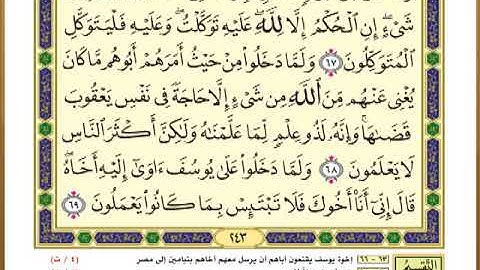 شَىْءٍ إِنِ الْحُكْمُ إِلَّا لِلَّهِ عَلَيْهِ تَوَكَّلْتُ وَعَلَيْهِ فَلْيَتَوَكَّلِ
الْمُتَوَكِّلُونَ ٦٧ وَلَمَّا دَخَلُوا مِنْ حَيْثُ أَمَرَهُمْ أَبُوهُم مَّا كَانَ
يُغْنِى عَنْهُم مِّنَ اللَّهِ مِن شَىْءٍ إِلَّا حَاجَةً فِى نَفْسِ يَعْقُوبَ
قَضَىٰهَا وَإِنَّهُ لَذُو عِلْمٍ لِّمَا عَلَّمْنَٰهُ وَلَٰكِنَّ أَكْثَرَ النَّاسِ
لَا يَعْلَمُونَ ٦٨ وَلَمَّا دَخَلُوا عَلَىٰ يُوسُفَ ءَاوَىٰٓ إِلَيْهِ أَخَاهُ
قَالَ إِنِّىٓ أَنَا۠ أَخُوكَ فَلَا تَبْتَئِسْ بِمَا كَانُوا يَعْمَلُونَ ٦٩
٢٤٣
التقسيم ٦٣ - ٦٦ إخوة يوسف يقنعون أباهم أن يرسل معهم أخاهم بنيامين إلى مصر (٤ / ت)